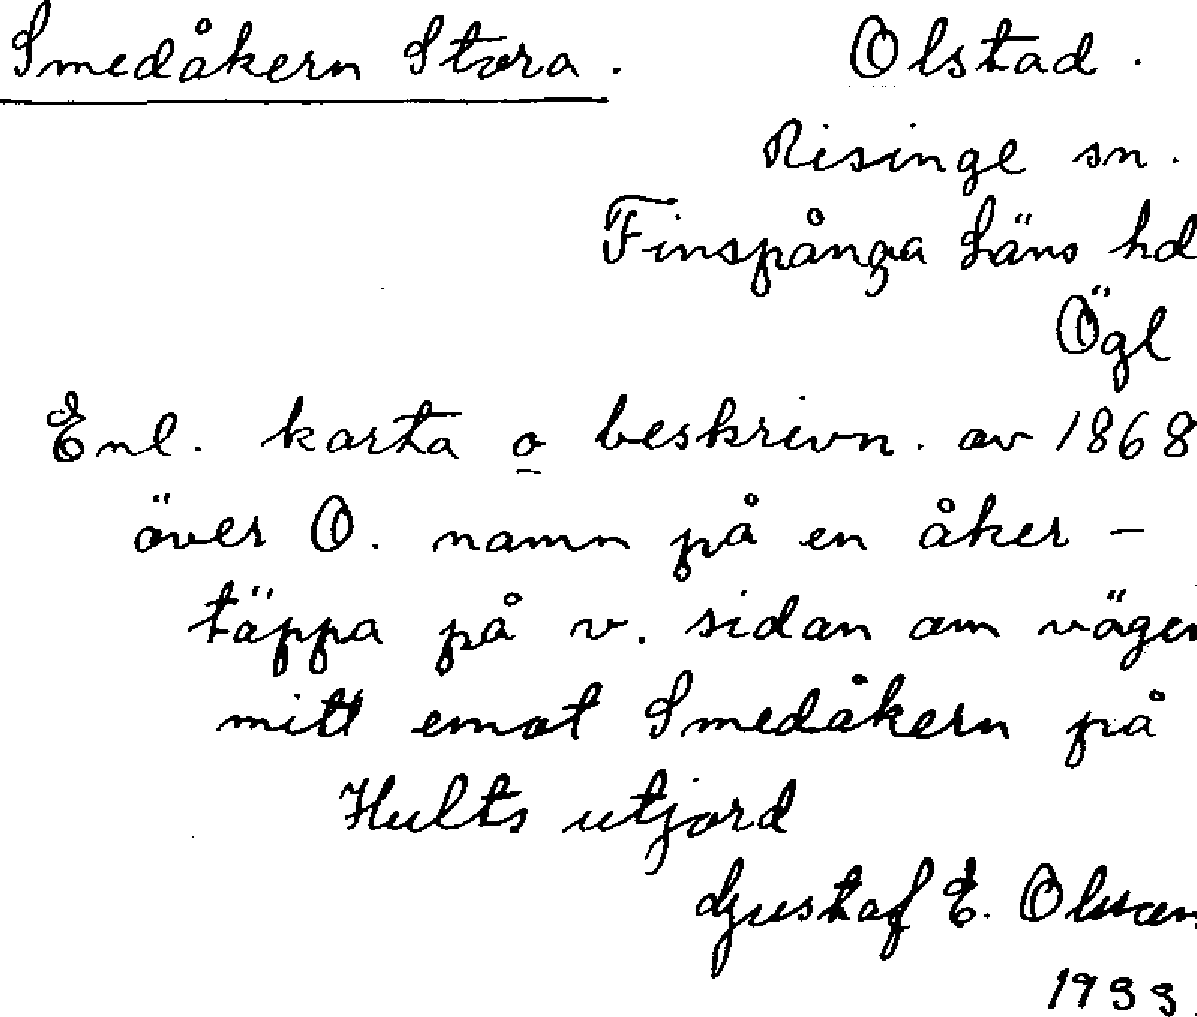 Smedåkern Stora. Olstad.
Risinge sn.
Finspånga Läns hd
Ögl
Enl. karta o beskrivn. av 1868
över O. namn på en åker-
täppa på v. sidan om vägen
mitt emot Smedåkern på
Hults utjord
Gustaf E. Olsson
1933.